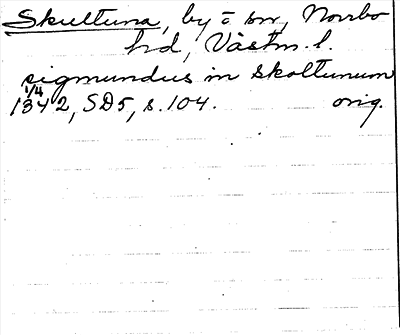 Skultuna, by o sn, Norrbo
hd, Västm. l.
sigmundus in skoltunum
1/4
1342, SD5, s. 104. orig.